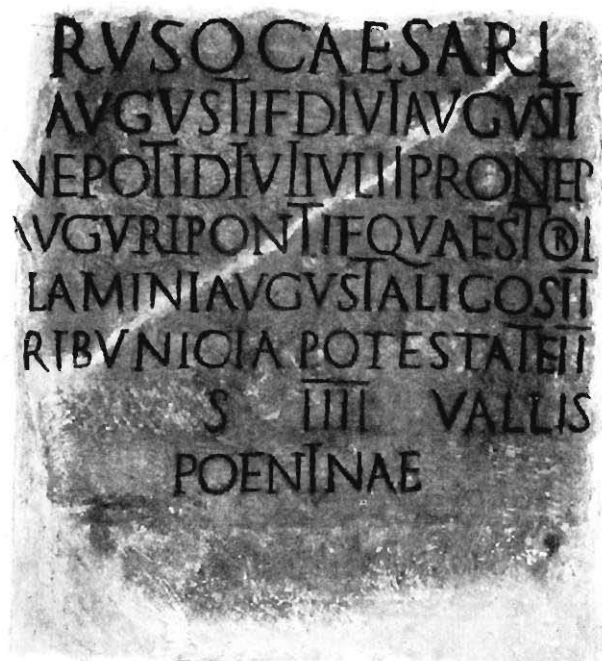 RVSO CAESARI
AVGVSTI F DIVI AVGVSTI
NEPOTI DIVI IVLII PRONEP
AVGVRI PONTIF QVAESTORI
LAMINI AVGVSTALI COS II
RIBVNICIA POTESTATE II
S IIII VALLIS
POENINAE